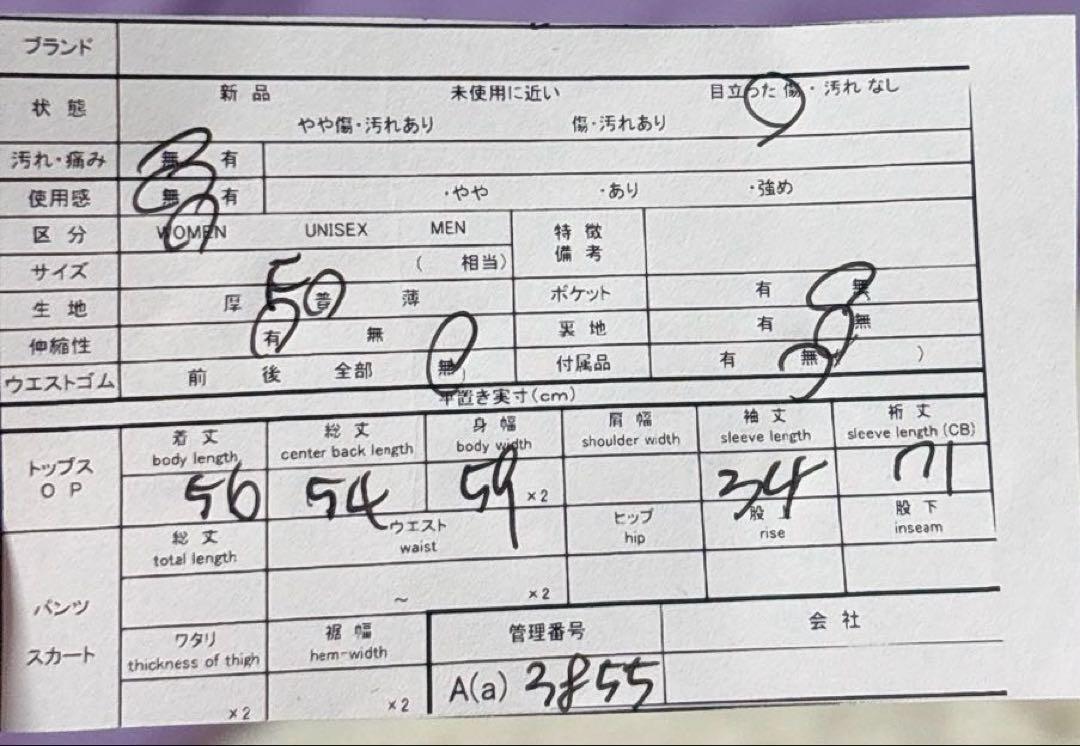 ブランド
状態 新品 未使用に近い 目立った傷・汚れなし
やや傷・汚れあり 傷・汚れあり
汚れ・痛み 無 有
使用感 無 有 ・やや ・あり ・強め
区分 WOMEN UNISEX MEN 特徴
備考
サイズ ( 相当)
生地 厚 普 薄 ポケット 有 無
伸縮性 有 無 裏地 有 無
ウエストゴム 前 後 全部 無) 付属品 有 無 )
平置き実寸(cm)
トップス
OP
着丈 総丈 身幅 肩幅 袖丈 裄丈
body length center back length body width shoulder width sleeve length sleeve length (CB)
56 54 59 ×2 34 71
パンツ
スカート
総丈 ウエスト ヒップ 股上 股下
total length waist hip rise inseam
～ ×2
ワタリ 裾幅 管理番号 会社
thickness of thigh hem-width
×2 ×2 A(a) 3855